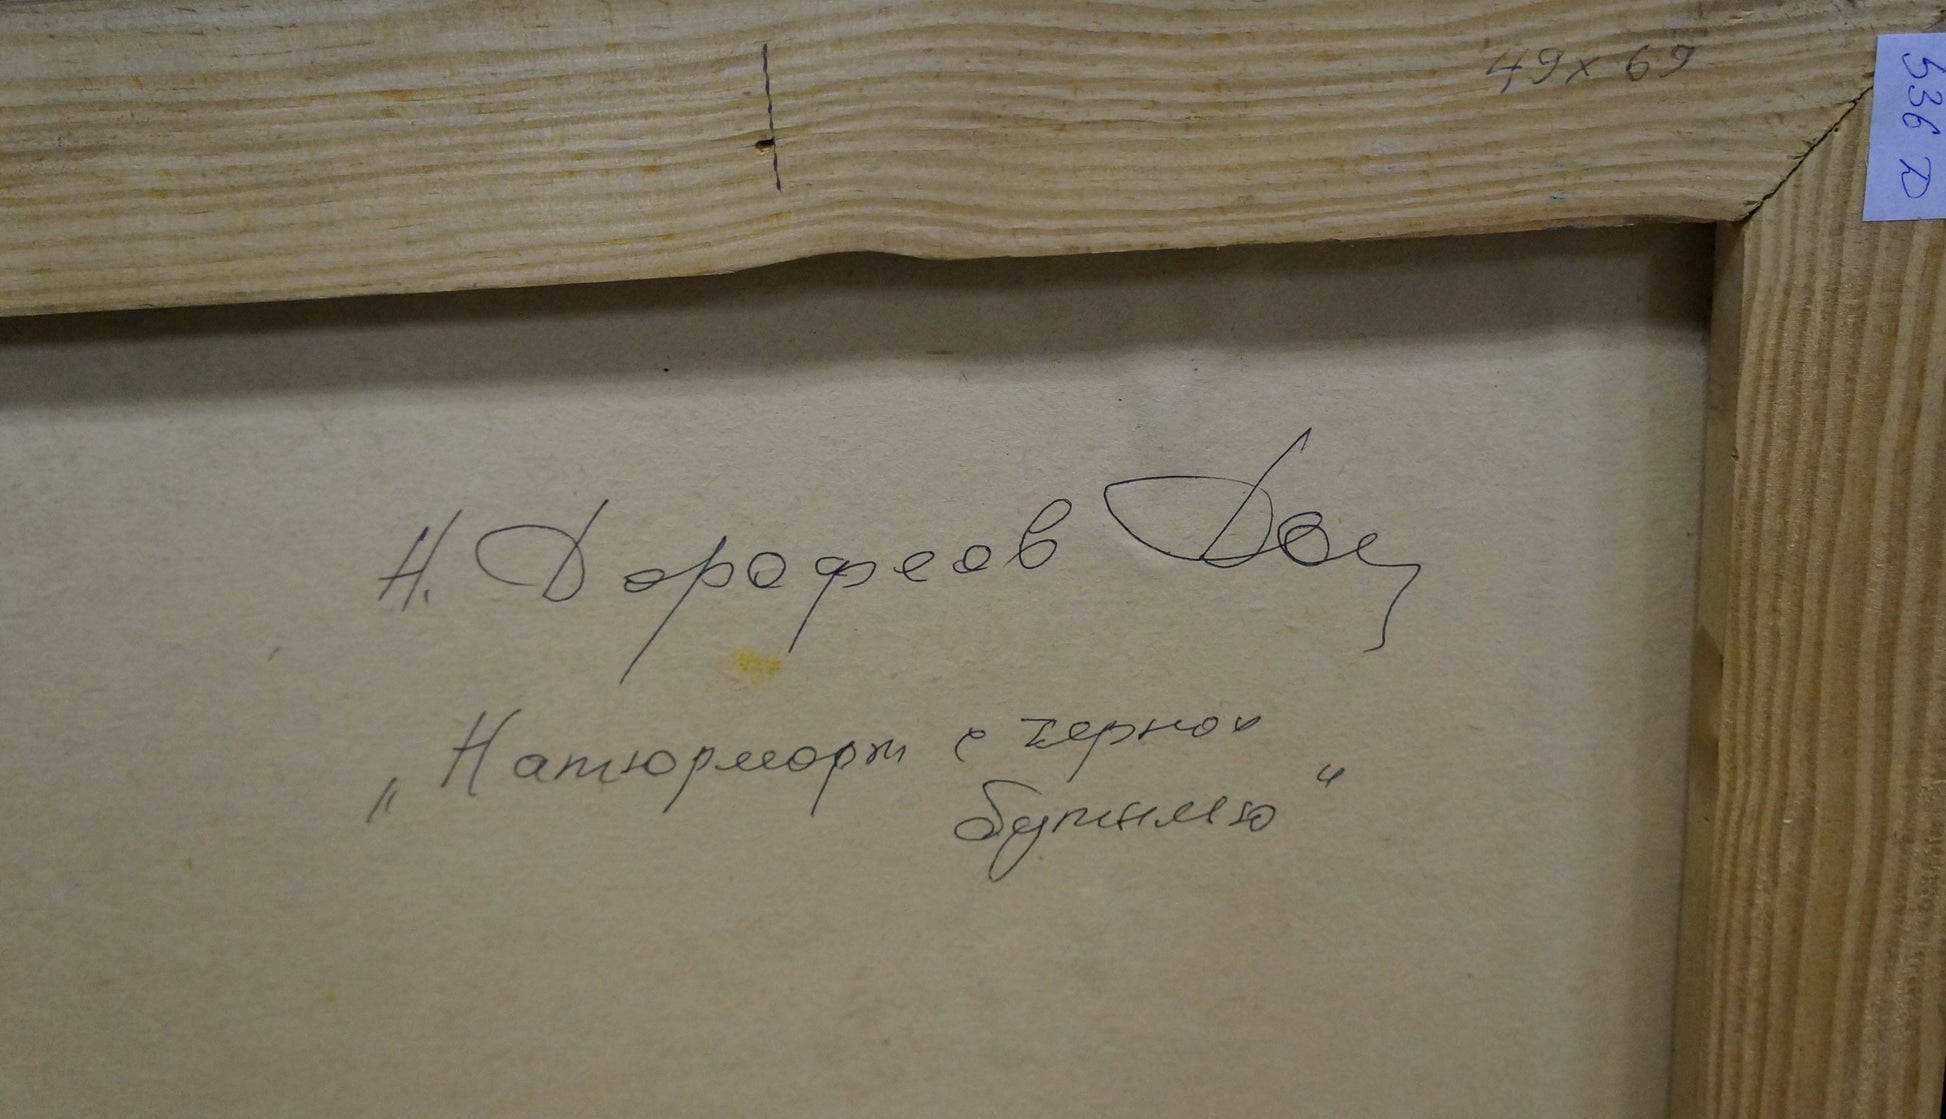 49х69
536 D
Н. Дорофеев
„Натюрморт с черной
бутылью"